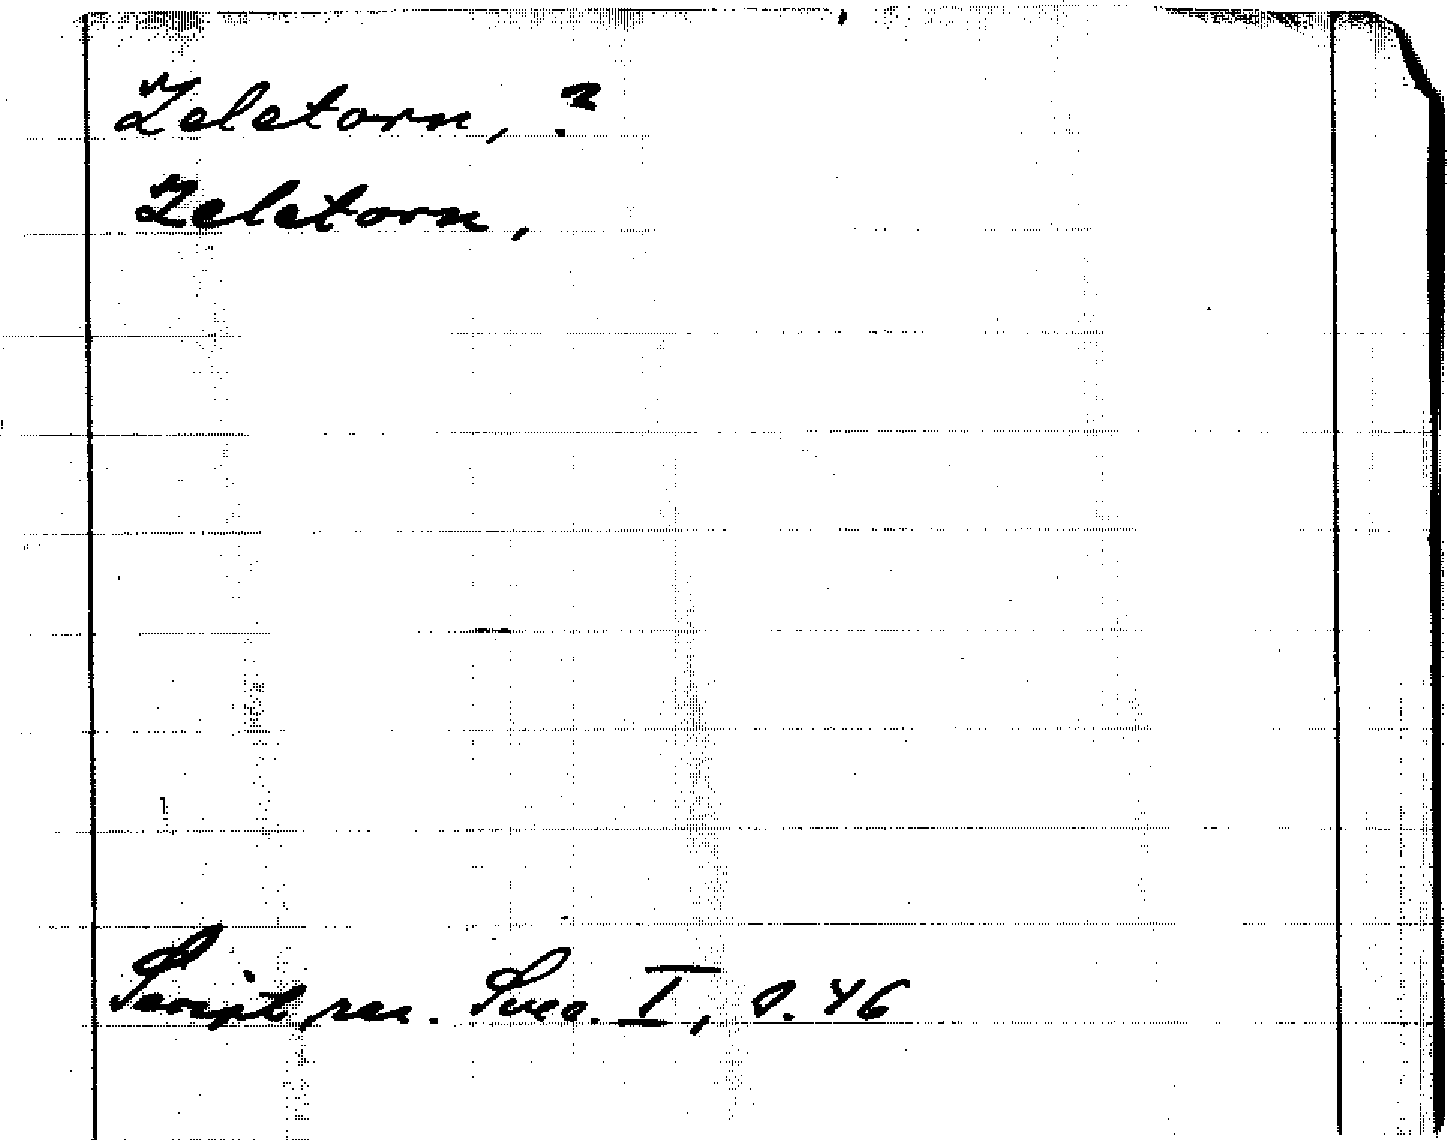 Zeletorn, ?
Zeletorn,
Script. rer. Svec. I, s. 46